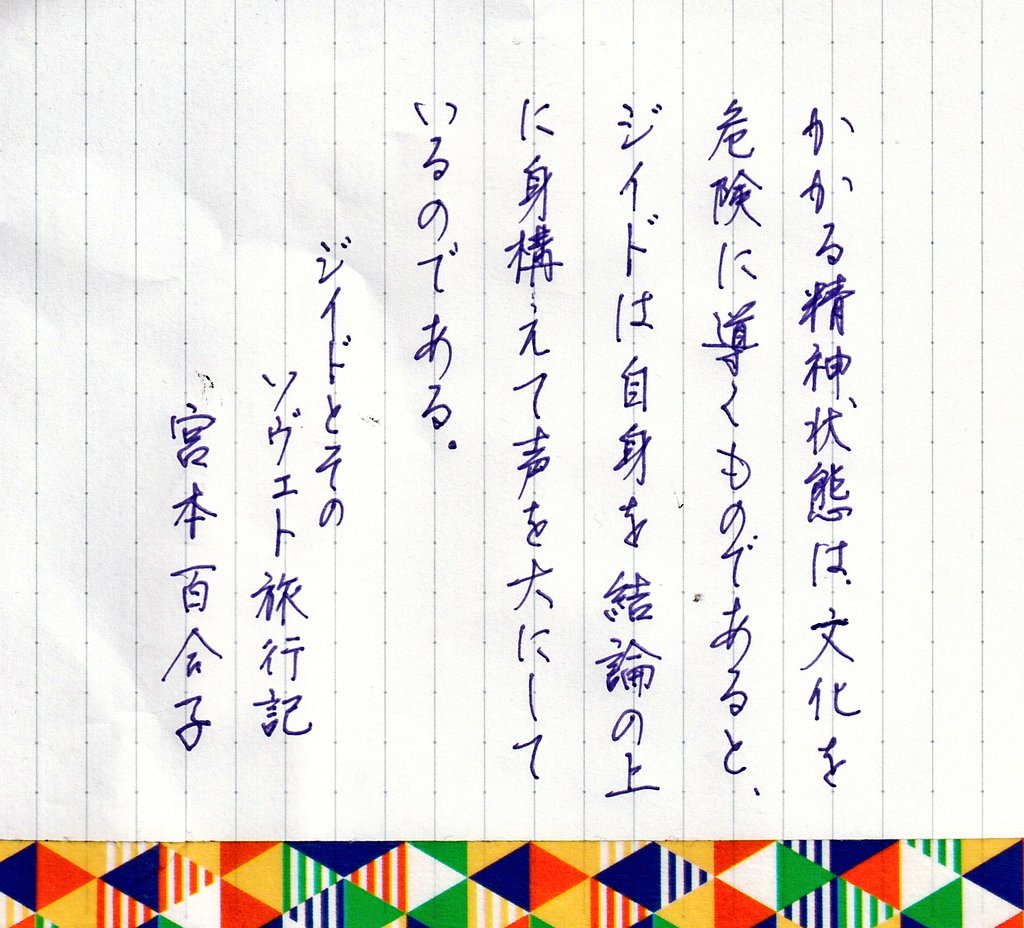 かかる精神状態は、文化を
危険に導くものであると、
ジイドは自身を結論の上
に身構えて声を大にして
いるのである。
ジイドとその
ソヴェト旅行記
宮本百合子